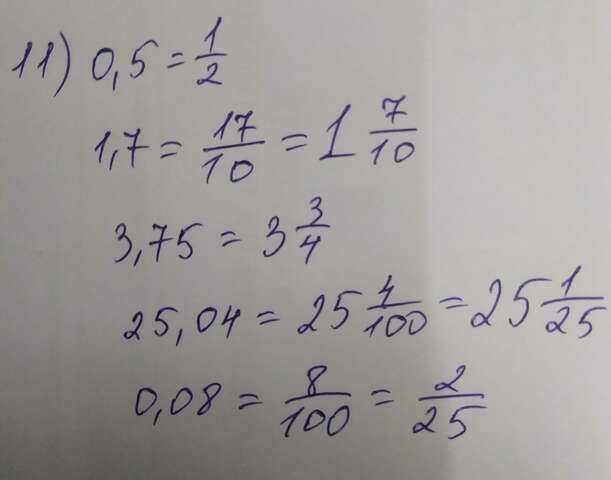 11) 0,5 = 1/2
1,7 = 17/10 = 1 7/10
3,75 = 3 3/4
25,04 = 25 4/100 = 25 1/25
0,08 = 8/100 = 2/25